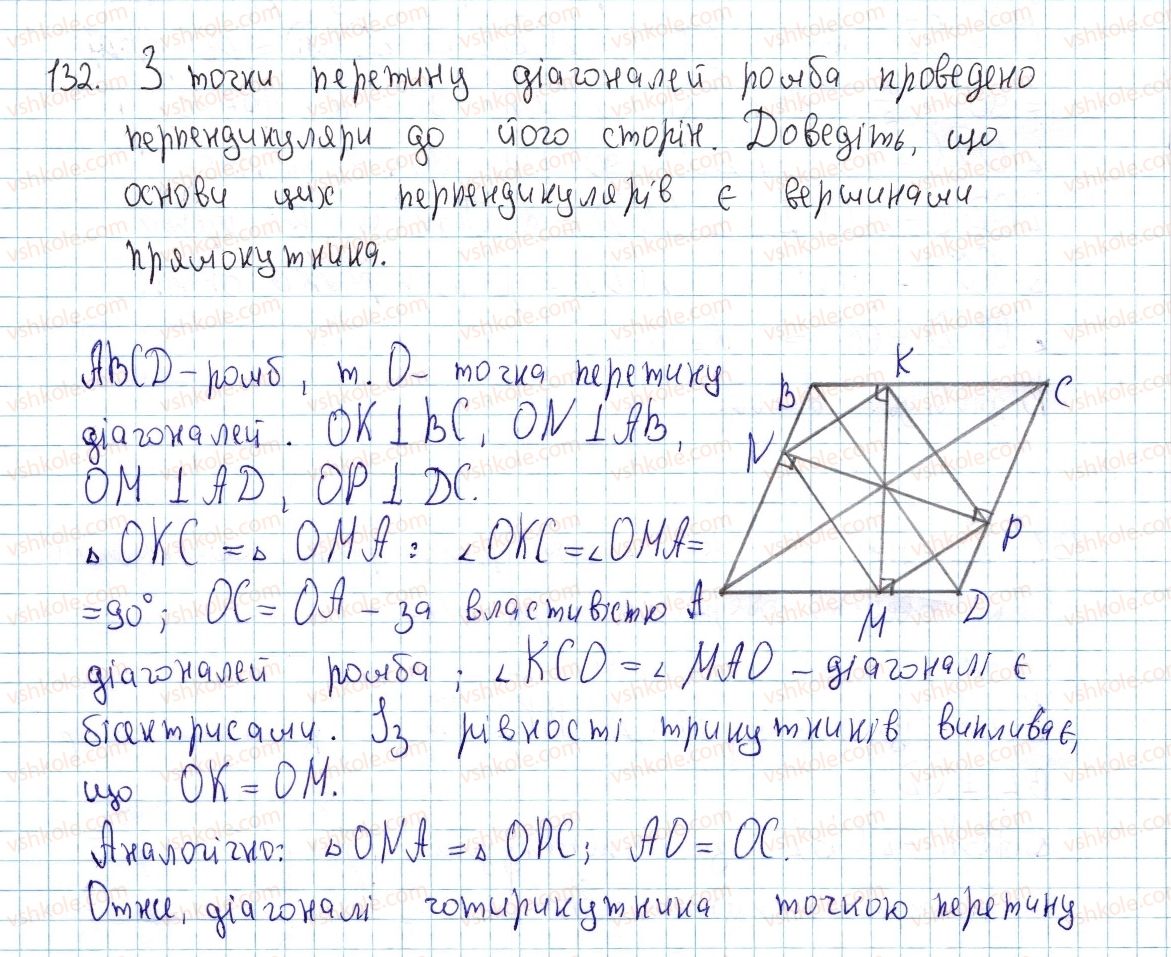 132. З точки перетину діагоналей ромба проведено
перпендикуляри до його сторін. Доведіть, що
основи цих перпендикулярів є вершинами
прямокутника.
ABCD – ромб, т. O – точка перетину
діагоналей. OK ⊥ BC, ON ⊥ AB,
OM ⊥ AD, OP ⊥ DC.
△ OKC = △ OMA: ∠OKC = ∠OMA =
= 90°; OC = OA – за властивістю
діагоналей ромба; ∠KCO = ∠MAO – діагоналі є
бісектрисами. Із рівності трикутників випливає,
що OK = OM.
Аналогічно: △ONA = △OPC; AO = OC.
Отже, діагоналі чотирикутника точкою перетину
B
K
C
N
P
A
M
D
vshkole.com